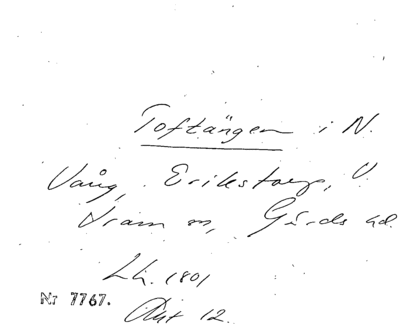 Toftängen i N.
Vång, Erikstorp, V.
Vram sn, Gärds hd.
Lh. 1801
Akt 12.
Nr 7767.